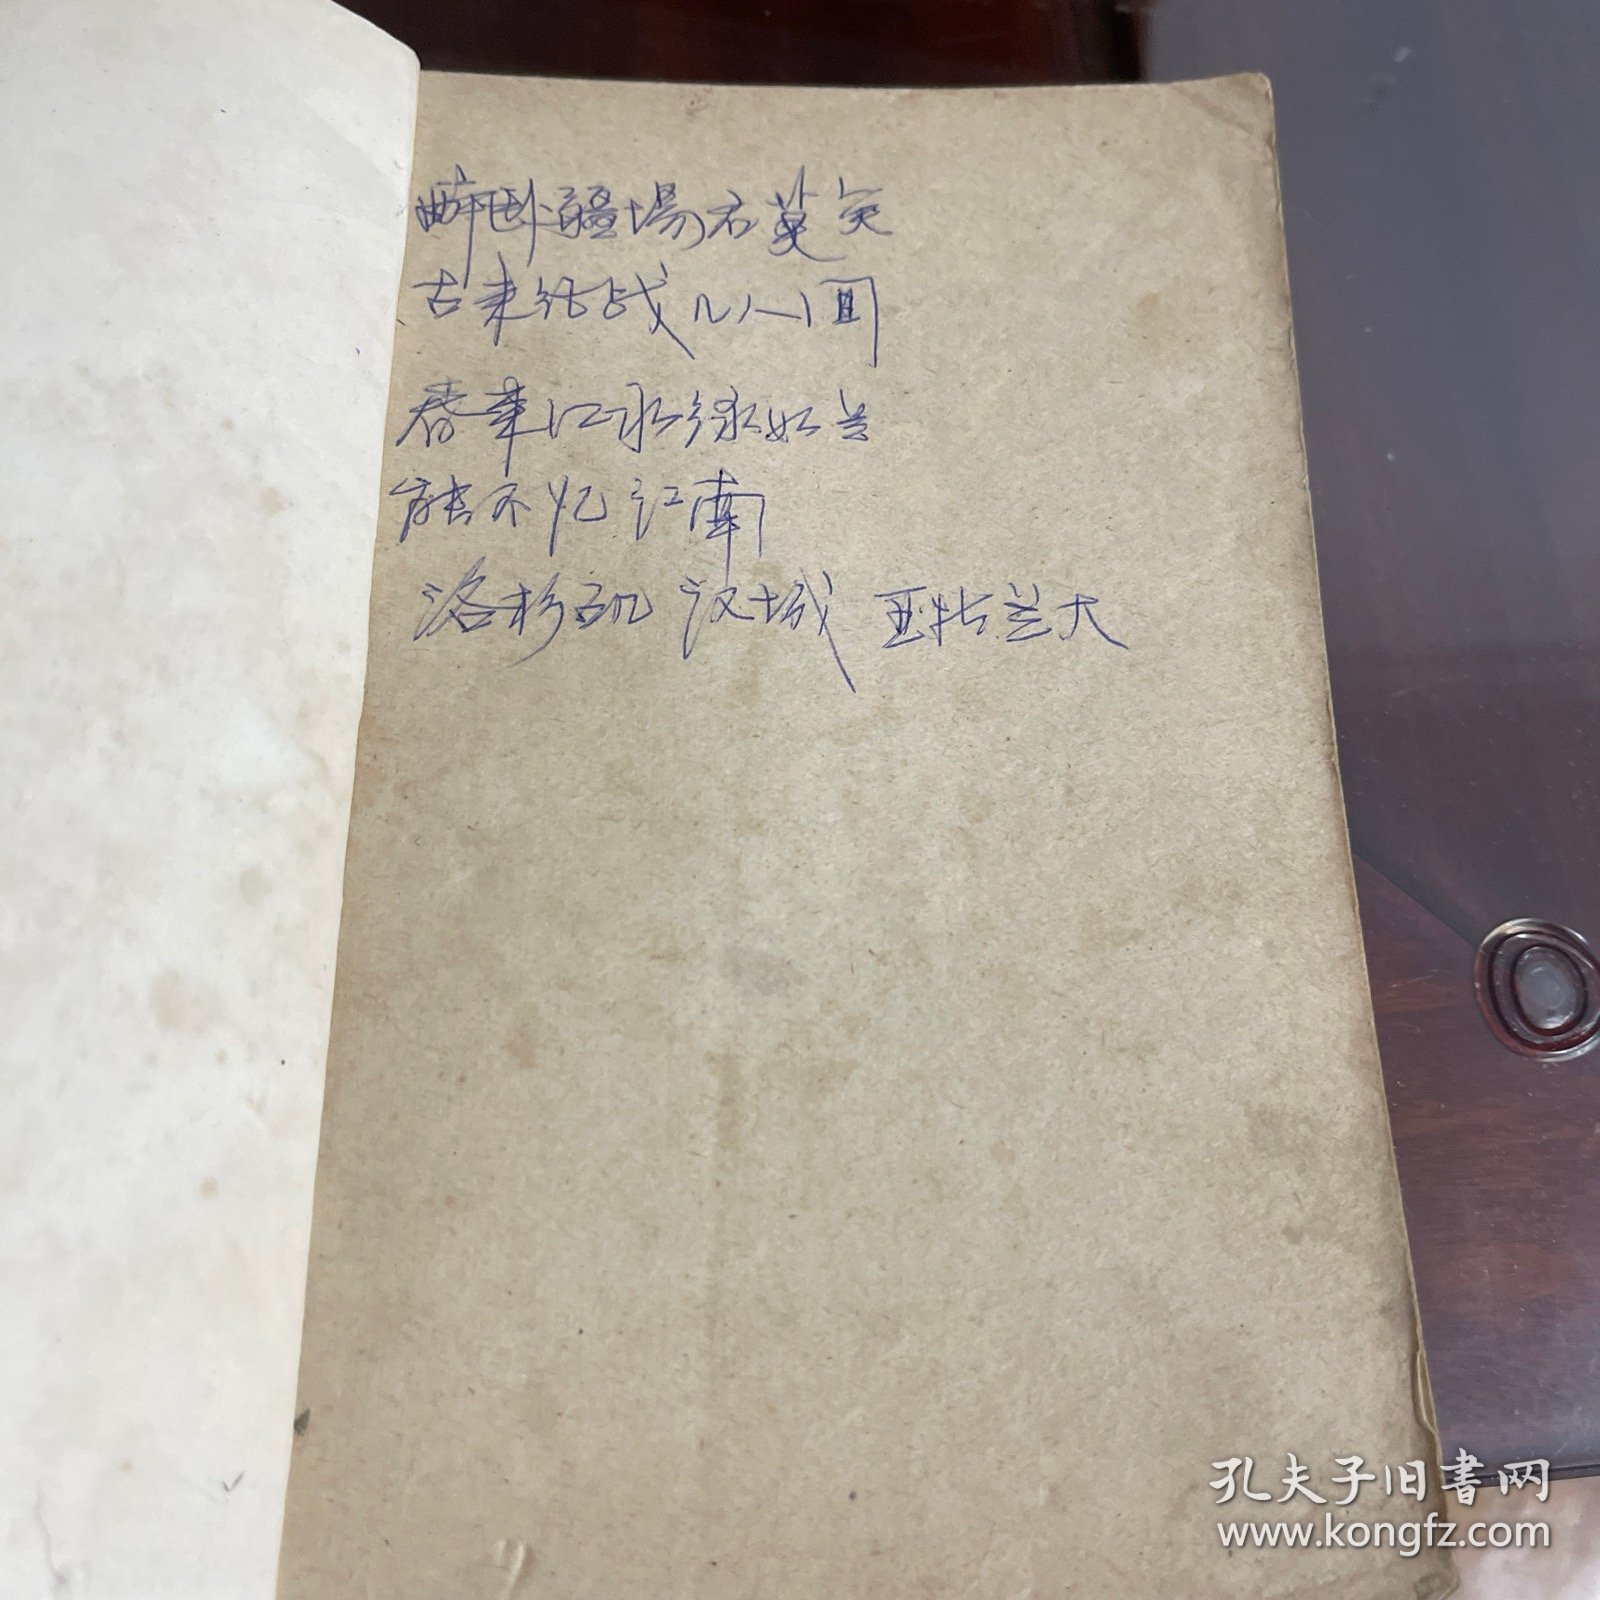 醉卧疆場君莫笑
古来征战几人回
春来江水绿如兰
能不忆江南
洛杉矶 汉城 亚特兰大
孔夫子旧書网
www.kongfz.com